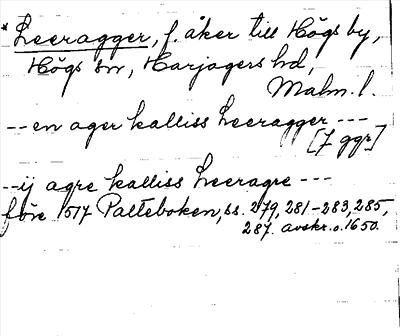 * Leeragger, f. åker till Högs by,
Högs sn, Harjagers hd,
Malm. l.
-- en ager kalliss Leeragger ---
[7 ggr]
-- ij agre kalliss Leeragre ---
före 1517 Palteboken, ss. 279, 281-283, 285,
287. avskr. o. 1650.